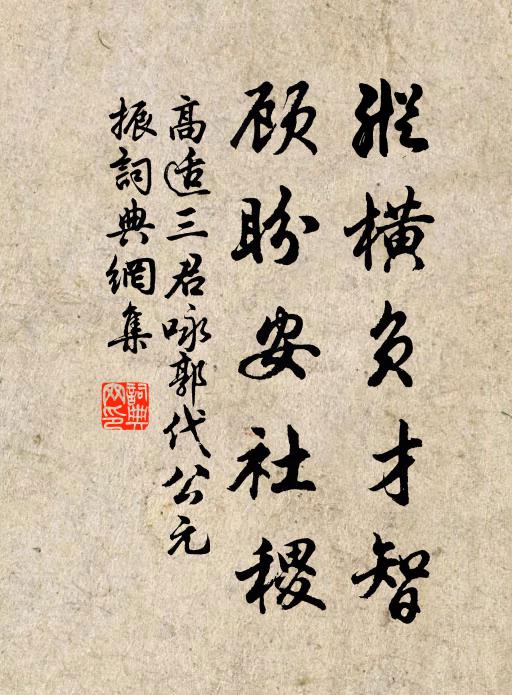 縱橫負才智
顧盼安社稷
高适三君咏郭代公元
振詞典網集
詞典
网印